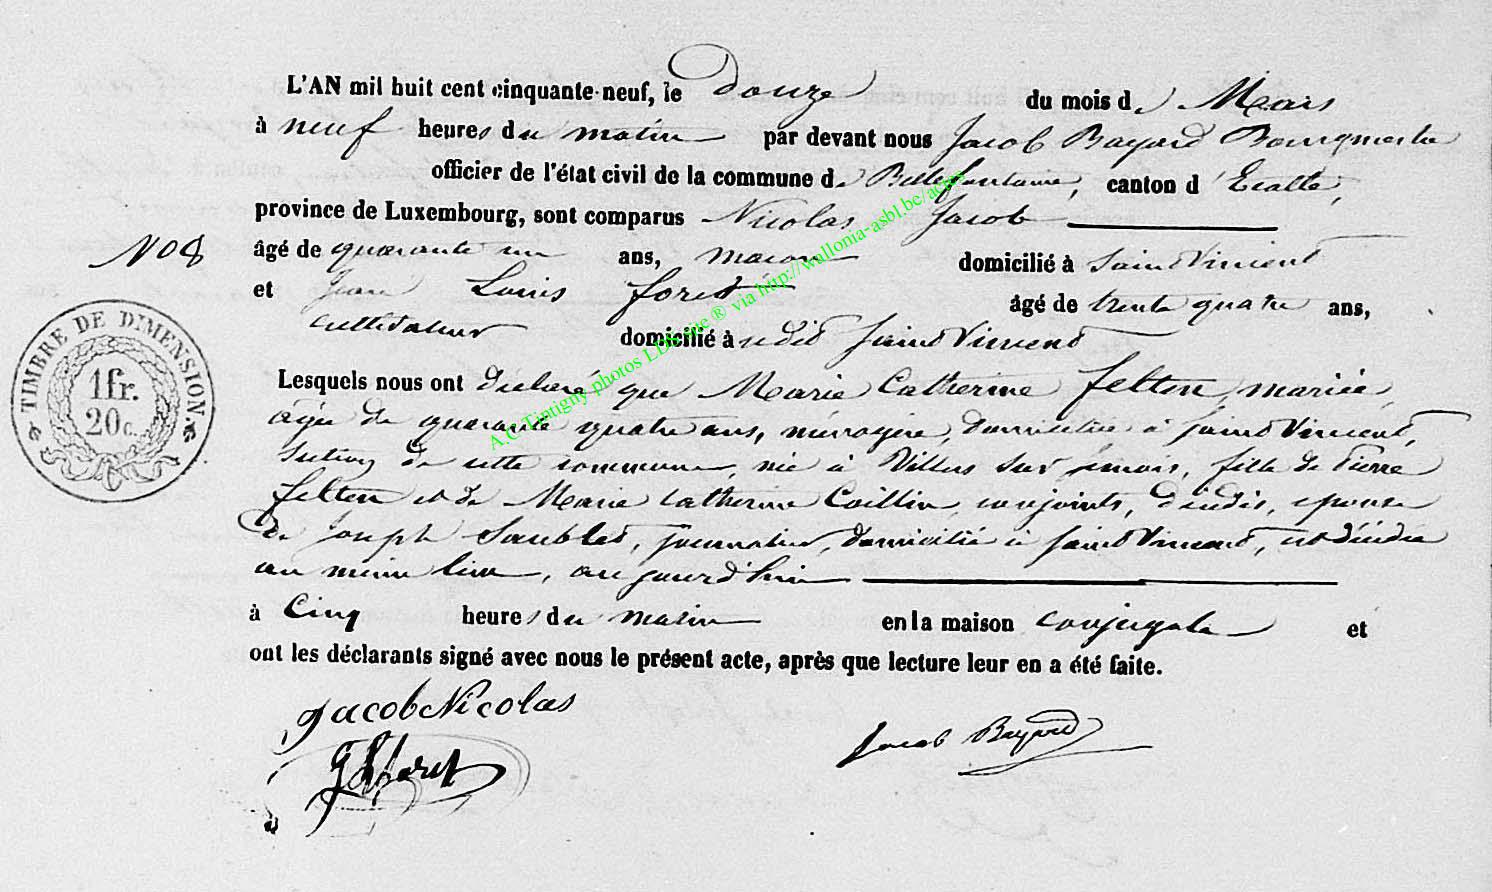 L'AN mil huit cent cinquante-neuf, le Douze du mois de Mars
à neuf heures du matin par devant nous Jacob Bayard Bourgmestre
officier de l'état civil de la commune de Bellefontaine, canton d'Etalle,
province de Luxembourg, sont comparus Nicolas Jacob
No 8
âgé de quarante un ans, maçon domicilié à Saint Vincent
et Jean Louis foret âgé de trente quatre ans,
cultivateur domicilié à sudit Saint Vincent
Lesquels nous ont déclaré que Marie Catherine felten, mariée,
âgée de quarante quatre ans, ménagère, domiciliée à Saint Vincent,
section de cette commune, née à Villers sur semois, fille de Pierre
felten et de Marie Catherine conjoints, décédés, épouse
de Joseph journalier, domicilié à Saint Vincent, est décédée
au même lieu, aujourd'hui
à Cinq heures du matin en la maison conjugale et
ont les déclarants signé avec nous le présent acte, après que lecture leur en a été faite.
Jacob Nicolas
Jacob Bayard
TIMBRE DE DIMENSION
1 fr.
20 c.
A.C Tintigny photos LDB ® via http://wallonia-asbl.be/actes